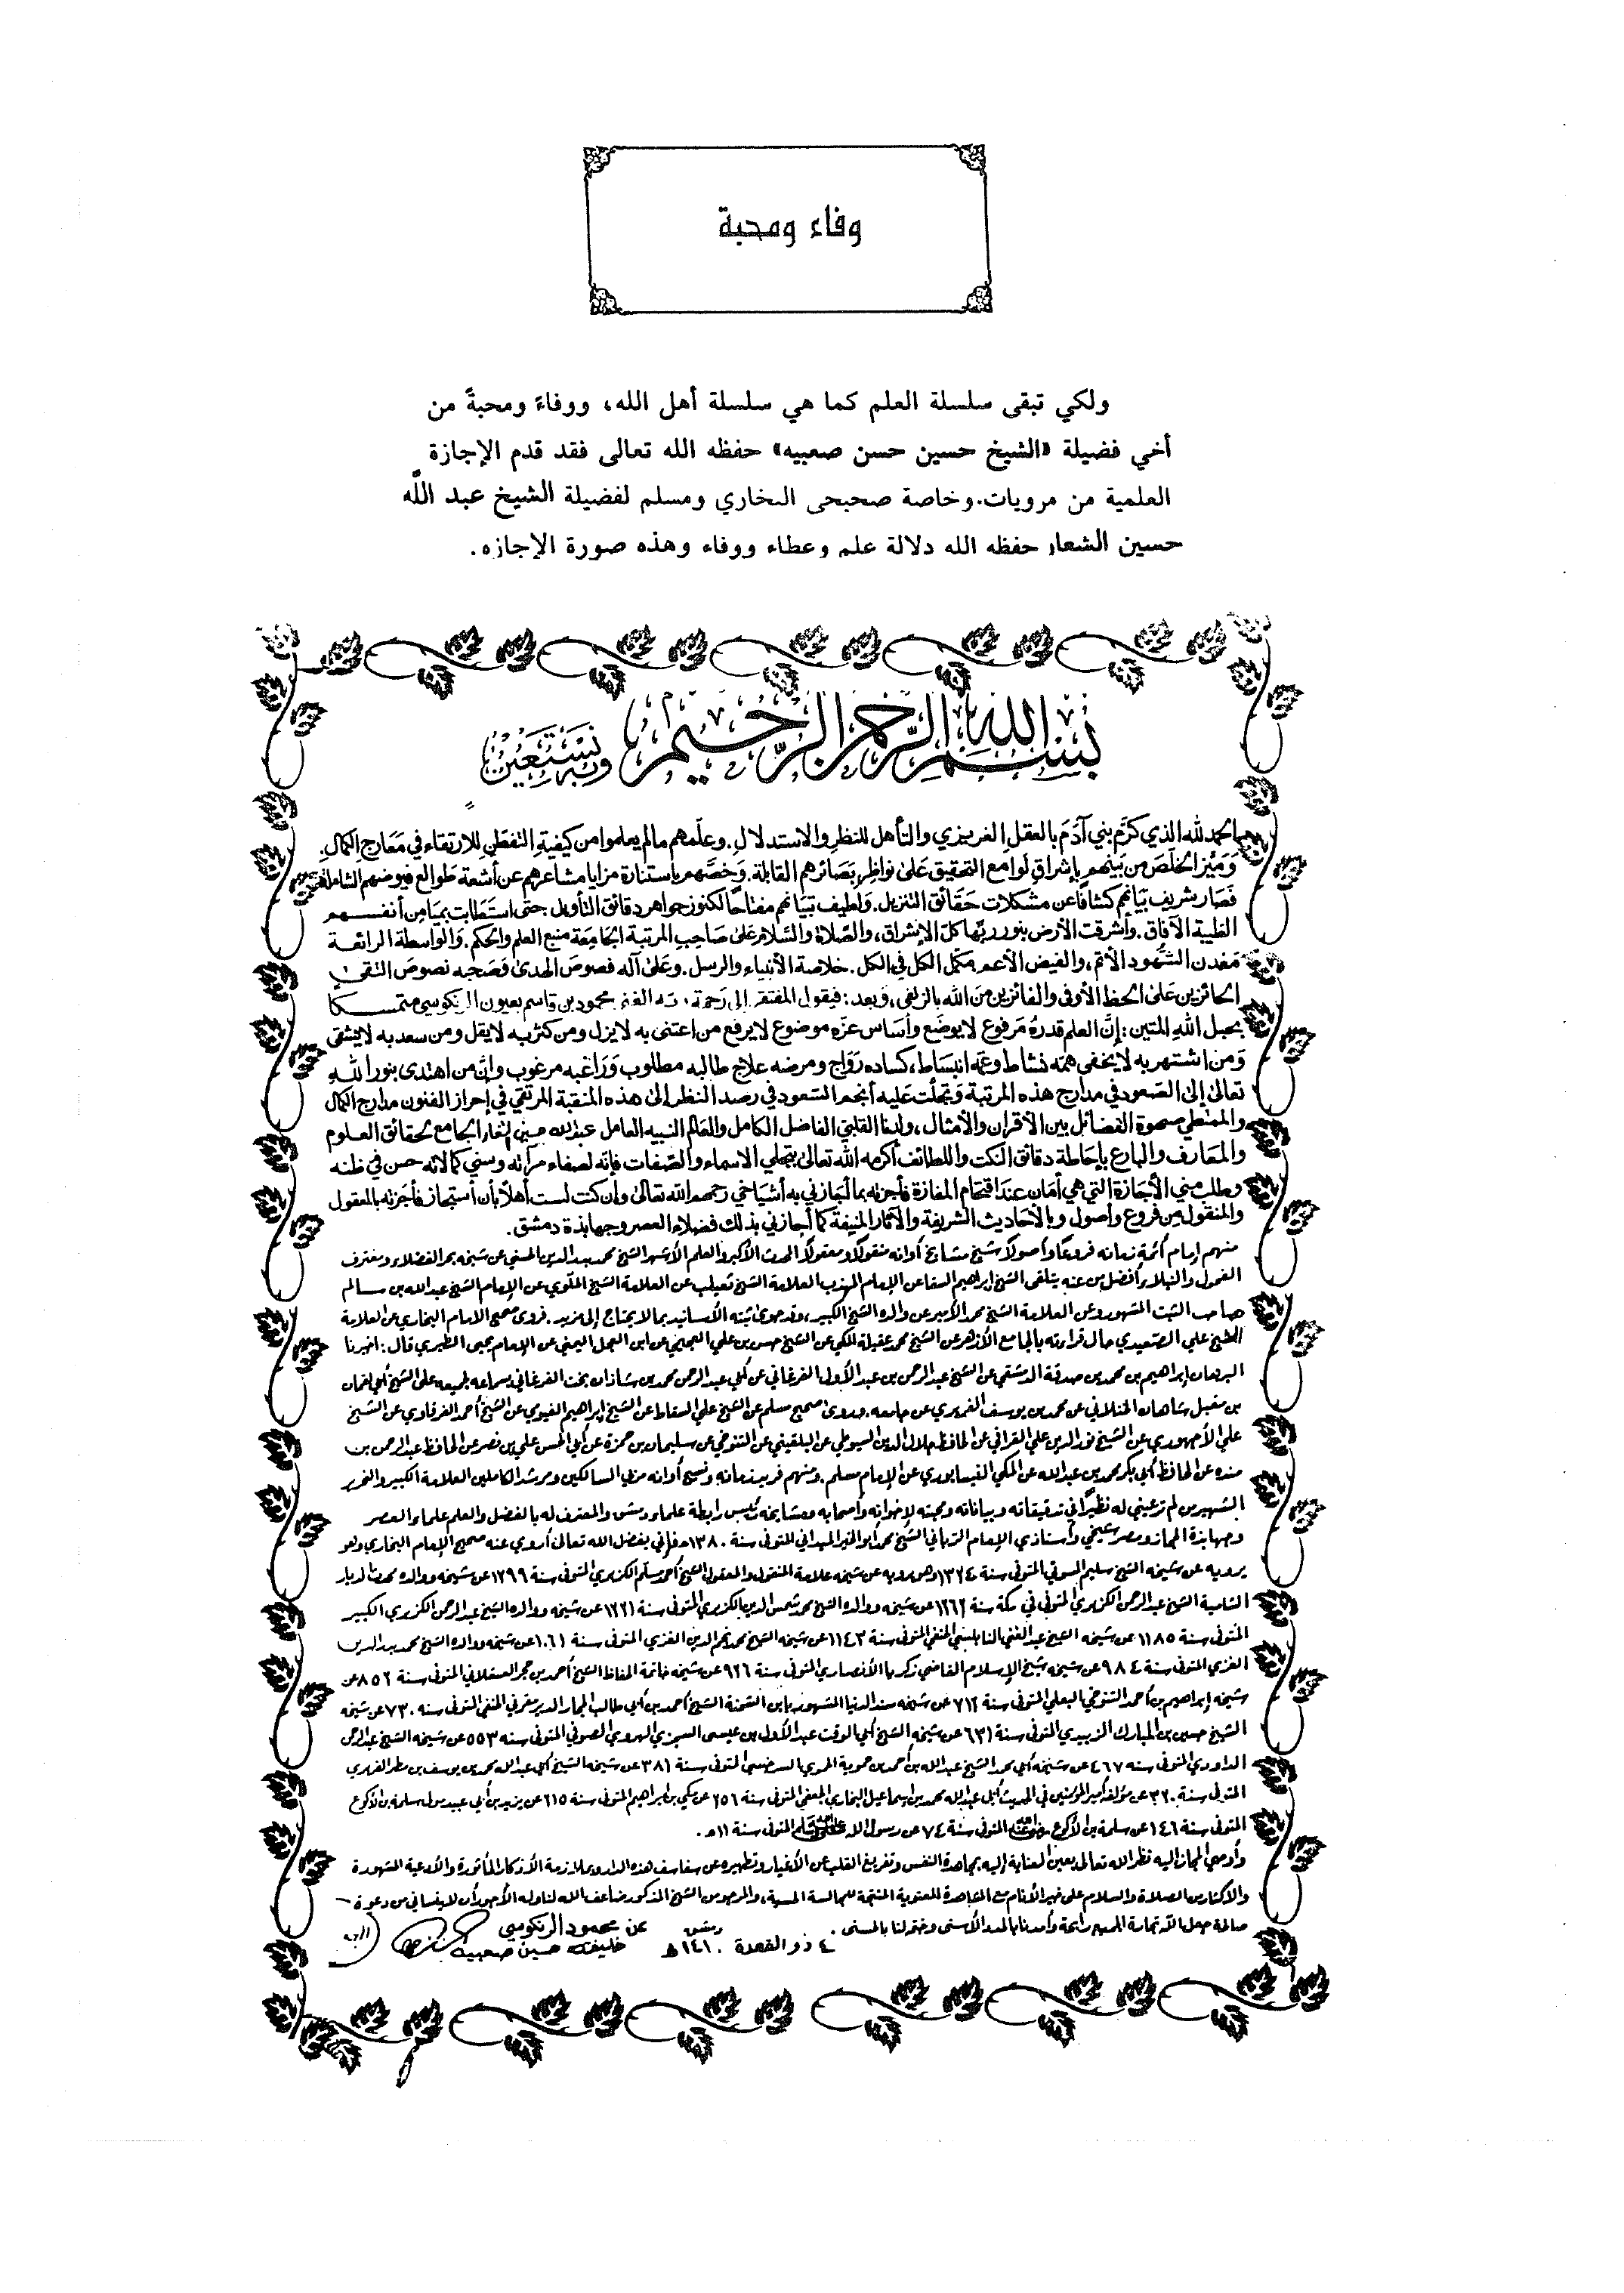 وفاء ومحبة
ولكي تبقى سلسلة العلم كما هي سلسلة أهل الله، ووفاءً ومحبةً من
أخي فضيلة «الشيخ حسين حسن صعبيه» حفظه الله تعالى فقد قدم الإجازة
العلمية من مرويات. وخاصة صحيحي البخاري ومسلم لفضيلة الشيخ عبد اللَّه
حسين الشعار حفظه الله دلالة علم وعطاء ووفاء وهذه صورة الإجازه.
بسم الله الرحمن الرحيم وبه نستعين
الحمد لله الذي كرّم بني آدم بالعقل الغريزي والتأهل للنظر والاستدلال. وعلّمهم مالم يعلموا من كيفية التفطن للارتقاء في معارج الكمال.
وَميّز الخلّصَ من بَينهم بإشراقِ لَوامع التحقيق عَلىٰ نواظِر بَصَائرهم القابلة. وَخصَّهم باستنارة مزايا مشاعرهم عن أشعة طوالع فيوضهم الشاملة
فصَار بشريف بيَانهم كشافًا عن مشكلات حَقَائق التنزيل. ولطيف تبيَانهم مفتاحًا لكنوز جواهر دقائق التأويل. حتى استَطابت بميَامِن أنفسهم
الطيبة الآفاق. وأشرقت الأرض بنور ربّها كلّ الإشراق، والصّلاة والسّلام عَلىٰ صَاحِب المرتبة الجَامِعَة منبع العلم والحكم. والواسطة الرائعة
مَعْدن الشّهود الأتم، والفيض الأعم مكمّل الكل في الكل. خلاصة الأنبياء والرسل. وعَلىٰ آله فصوص الهدىٰ وَصَحبه نصوصَ التقىٰ
الحائزين عَلىٰ الحظ الأوفى والفائزين منَ الله بالزلفى، وَبعد: فيقول المفتقر إلى رَحمة ربه الغني محمود بن قاسم بعيون الرنكوسي متمسكًا
بحبل الله المتين: إنَّ العلم قدرهُ مَرفوع لا يوضَع وأساس عزّه موضوع لا يرفع من اعتنى به لا يزل ومن كثر به لا يقل ومن سعد به لا يشقى
وَمن اشتهر به لا يخفى همّه نشاط وغمّه انبسَاط، كساده رَوَاج ومرضه علاج طالبه مطلوب وَرَاغبه مرغوب وإنَّ من اهتدى بنور الله
تعالىٰ إلىٰ الصّعود في مدارج هذه المرتبة وَتجلّت عَليه أنجم السّعود في رصد النظر إلىٰ هذه المنقبة المرتقي في إحراز الفنون مدارج الكمال
والممتطي صهوة الفضائل بين الأقران والأمثال، ولدنا القلبيّ الفاضل الكامل والعَالم النبيه العامل عبد الله حسين الشعار الجامع لحقائق العلوم
والمعَارف والبارع بإحَاطة دقائق النكت واللطائف أكرمه الله تعالىٰ بتجلي الاسماء والصّفات فإنّه لصفاء مرآته وسني كمالاته حسن في ظنه
وطلب مني الأجازة التي هي أمَان عندَ اقتحام المفازة فأجزته بما أجَازني به أشيَاخي رحمهم الله تعالىٰ وإن كنت لست أهلًا بأن أستجاز فأجَزته بالمعقول
والمنقول من فروع وأصول وبالأحاديث الشريفة والآثار المنيفة كما أجازني بذلك فضلاء العصر وجهابذة دمشق.
منهم إمام أئمة زمانه فروعًا وأصولًا شيخ مشايخ أوانه منقولًا ومعقولًا المحدث الأكبر والعلم الأشهر الشيخ محمد بدر الدين الحسني عن شيخه بحر الفضلاء ومغترف
الفحول والنبلاء وأفضل من عنه يتلقى الشيخ إبراهيم السقا عن الإمام المهذب العلامة الشيخ ثعيلب عن العلامة الشيخ الملّوي عن الإمام الشيخ عبد الله بن سالم
صاحب الثبت المشهور وعن العلامة الشيخ محمد الأمير عن والده الشيخ الكبير، وقد حوى ثبته الأسانيد بما لا يحتاج إلى مزيد. فروى صحيح الامام البخاري عن العلامة
الشيخ علي الصعيدي حال قراءته بالجامع الأزهر عن الشيخ محمد عقيلة المكي عن الشيخ حسن بن علي العجيمي عن ابن العجل اليمني عن الإمام يحيى الطبري قال: أخبرنا
البرهان إبراهيم بن محمد بن صدقة الدمشقي عن الشيخ عبد الرحمن بن عبد الأول الفرغاني عن أبي عبد الرحمن محمد بن شاذان بخت الفرغاني بسماعه لجميعه على الشيخ أبي لقمان
بن مقبل شاهان الختلاني عن محمد بن يوسف الفربري عن جامعه. وروى صحيح مسلم عن الشيخ علي السقاط عن الشيخ إبراهيم الفيومي عن الشيخ أحمد الغرقاوي عن الشيخ
علي الأجهوري عن الشيخ نور الدين علي القرافي عن الحافظ جلال الدين السيوطي عن البلقيني عن التنوخي عن سليمان بن حمزة عن أبي الحسن علي بن نصر عن الحافظ عبد الرحمن بن
منده عن الحافظ أبي بكر محمد بن عبد الله عن المكي النيسابوري عن الإمام مسلم. ومنهم فريد زمانه ونسيج أوانه مربي السالكين ومرشد الكاملين العلامة الكبير والنحرير
الشهير من لم تر عيني له نظيرًا في تدقيقاته وبياناته ومحبته لإخوانه وأصحابه ومشايخه رئيس رابطة علماء دمشق والمعترف له بالفضل والعلم علماء العصر
وجهابذة الحجاز ومصر شيخي وأستاذي الإمام الرباني الشيخ محمد أبو الخير الميداني المتوفى سنة ١٣٨٠هـ فإني بفضل الله تعالى أروي عنه صحيح الإمام البخاري وهو
يرويه عن شيخه الشيخ سليم المسوتي المتوفى سنة ١٣٢٤ وهو يرويه عن شيخه علامة المنقول والمعقول الشيخ أحمد مسلّم الكزبري المتوفى سنة ١٢٩٩ عن شيخه ووالده محدث الديار
الشامية الشيخ عبد الرحمن الكزبري المتوفى في مكة سنة ١٢٦٢ عن شيخه ووالده الشيخ محمد شمس الدين الكزبري المتوفى سنة ١٢٢١ عن شيخه ووالده الشيخ عبد الرحمن الكزبري الكبير
المتوفى سنة ١١٨٥ عن شيخه الشيخ عبد الغني النابلسي الحنفي المتوفى سنة ١١٤٣ عن شيخه الشيخ محمد نجم الدين الغزي المتوفى سنة ١٠٦١ عن شيخه ووالده الشيخ محمد بدر الدين
الغزي المتوفى سنة ٩٨٤ عن شيخه شيخ الإسلام القاضي زكريا الأنصاري المتوفى سنة ٩٢٦ عن شيخه خاتمة الحفاظ الشيخ أحمد بن حجر العسقلاني المتوفى سنة ٨٥٢ عن
شيخه إبراهيم بن أحمد التنوخي البعلي المتوفى سنة ٧١٢ عن شيخه مسند الدنيا المشهور بابن الشحنة الشيخ أحمد بن أبي طالب الحجار الدير مقرني الحنفي المتوفى سنة ٧٣٠ عن شيخه
الشيخ حسين بن المبارك الزبيدي المتوفى سنة ٦٣١ عن شيخه الشيخ أبي الوقت عبد الأول بن عيسى السجزي الهروي الصوفي المتوفى سنه ٥٥٣ عن شيخه الشيخ عبد الرحمن
الداوودي المتوفى سنه ٤٦٧ عن شيخه أبي محمد الشيخ عبد الله بن أحمد بن حموية الحموي السرخسي المتوفى سنة ٣٨١ عن شيخه الشيخ أبي عبد الله محمد بن يوسف بن مطر الفربري
المتوفى سنة ٣٢٠ عن مؤلفه أمير المؤمنين في الحديث أبي عبد الله محمد بن إسماعيل البخاري الجعفي المتوفى سنة ٢٥٦ عن مكي بن إبراهيم المتوفى سنة ٢١٥ عن يزيد بن أبي عبيد مولى سلمة بن الأكوع
المتوفى سنة ١٤٦ عن سلمة بن الأكوع رضي الله عنه المتوفى سنة ٧٤ عن رسول الله صلى الله عليه وسلم المتوفى سنة ١١هـ.
وأوصي المجاز إليه نظر الله تعالى بعين العناية إليه بمجاهدة النفس وتفريغ القلب عن الأغيار وتطهيره عن سفاسف هذه الدار وبملازمة الأذكار المأثورة والأدعية المشهورة
والاكثار من الصلاة والسلام على خير الأنام مع المجاهدة المعنوية المنتجة للمجالسة الحسية، والمرجو من الشيخ المذكور ضاعف الله لنا وله الأجور أن لا ينساني من دعوة
صالحة جعل الله تجارة الجميع رابحة وأمدنا بالمدد الأسنى وختم لنا بالحسنى.
عن محمود الرنكوسي
دمشق
٤ ذو القعدة ١٤١٠هـ
خليفته حسين صعبيه